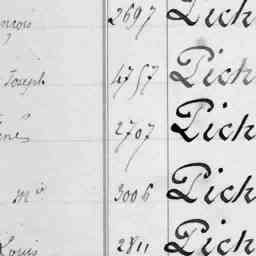 2697 Pich
Joseph 4757 Pich
2707 Pich
M ie 3006 Pich
Louis 2811 Pich